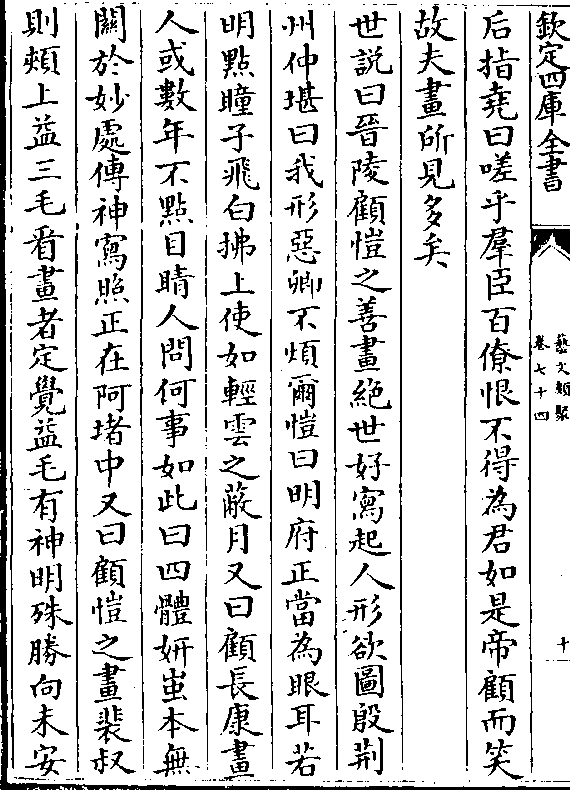 欽定四庫全書
藝文類聚
卷七十四
十
后指堯曰嗟乎羣臣百僚恨不得為君如是帝顧而笑
故夫畫所見多矣
世說曰晉陵顧愷之善畫絕世好寫起人形欲圖殷荆
州仲堪曰我形惡卿不煩爾愷曰明府正當為眼耳若
明點瞳子飛白拂上使如輕雲之蔽月又曰顧長康畫
人或數年不點目睛人問何事如此曰四體妍蚩本無
關於妙處傳神寫照正在阿堵中又曰顧愷之畫裴叔
則頰上益三毛看畫者定覺益毛有神明殊勝向未安